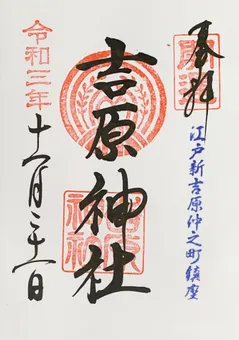 奉拝
開運
江戸新吉原仲之町鎮座
吉原神社
令和三年
十一月二十一日